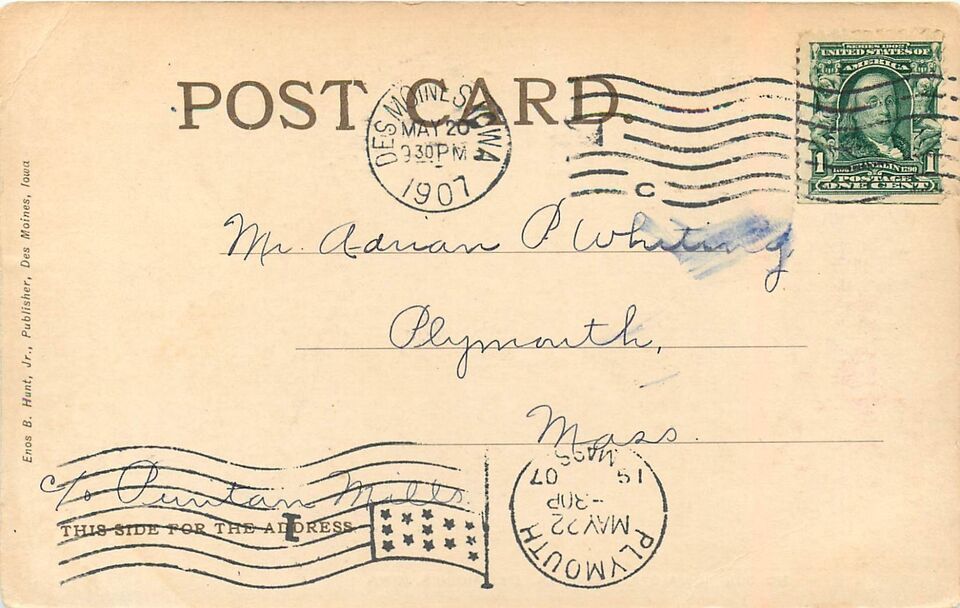 SERIES 1902
UNITED STATES OF
AMERICA
FRANKLIN 1790
POSTAGE
1 1
ONE CENT
POST CARD.
DES MOINES IOWA
MAY 20
930 PM
1907
C
Mr. Adrian P Whiting
Plymouth,
Mass.
c/o Puritan Mills
THIS SIDE FOR THE ADDRESS
1
PLYMOUTH
MAY 22
-30P
19 07
MASS
Enos B. Hunt, Jr., Publisher, Des Moines, Iowa